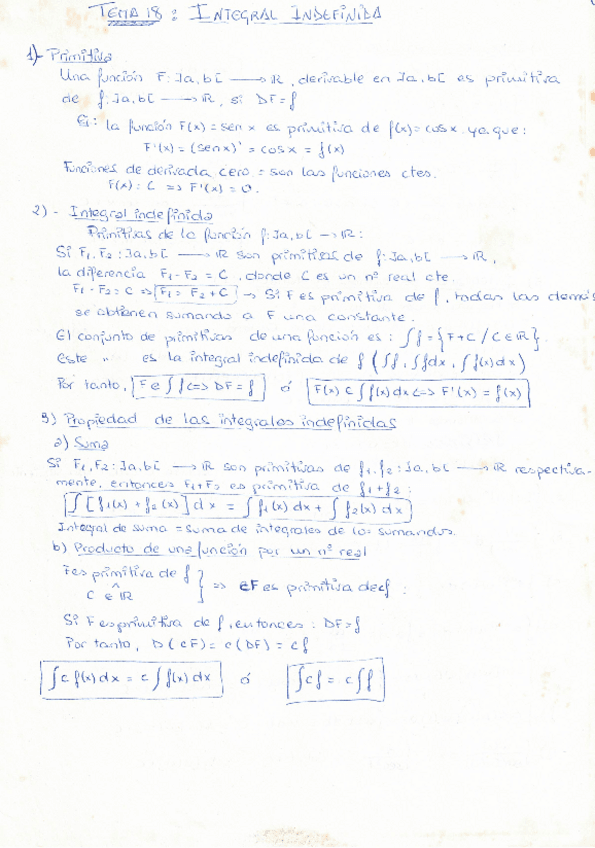 TEMA 18: INTEGRAL INDEFINIDA
1)- Primitiva
Una función F: ]a,b[ ⟶ ℝ, derivable en ]a,b[ es primitiva
de f: ]a,b[ ⟶ ℝ, si DF = f
Ej: la función F(x) = sen x es primitiva de f(x) = cos x. ya que:
F'(x) = (sen x)' = cos x = f(x)
Funciones de derivada cero = son las funciones ctes.
F(x): C ⇒ F'(x) = 0.
2) - Integral indefinida
Primitivas de la función f: ]a,b[ → ℝ:
Si F₁, F₂: ]a,b[ ⟶ ℝ son primitivas de f: ]a,b[ ⟶ ℝ,
la diferencia F₁ - F₂ = C, donde C es un nº real cte.
F₁ - F₂ = C ⇒ F₁ = F₂ + C → Si F es primitiva de f, todas las demás
se obtienen sumando a F una constante.
El conjunto de primitivas de una función es: ∫f = {F+C / C ∈ ℝ}.
Este " es la integral indefinida de f (∫f, ∫fdx, ∫f(x)dx)
Por tanto, F ∈ ∫f ⇔ DF = f ó F(x) ∈ ∫f(x)dx ⇔ F'(x) = f(x)
3) Propiedad de las integrales indefinidas
a) Suma
Si F₁, F₂: ]a,b[ ⟶ ℝ son primitivas de f₁, f₂: ]a,b[ ⟶ ℝ respectiva-
mente, entonces F₁+F₂ es primitiva de f₁+f₂:
∫[f₁(x) + f₂(x)] dx = ∫f₁(x) dx + ∫f₂(x) dx
Integral de suma = suma de integrales de los sumandos.
b) Producto de una función por un nº real
F es primitiva de f
^
C ∈ ℝ } ⇒ cF es primitiva de cf:
Si F es primitiva de f, entonces: DF = f
Por tanto, D(cF) = c(DF) = cf
∫c f(x) dx = c ∫f(x) dx ó ∫cf = c∫f